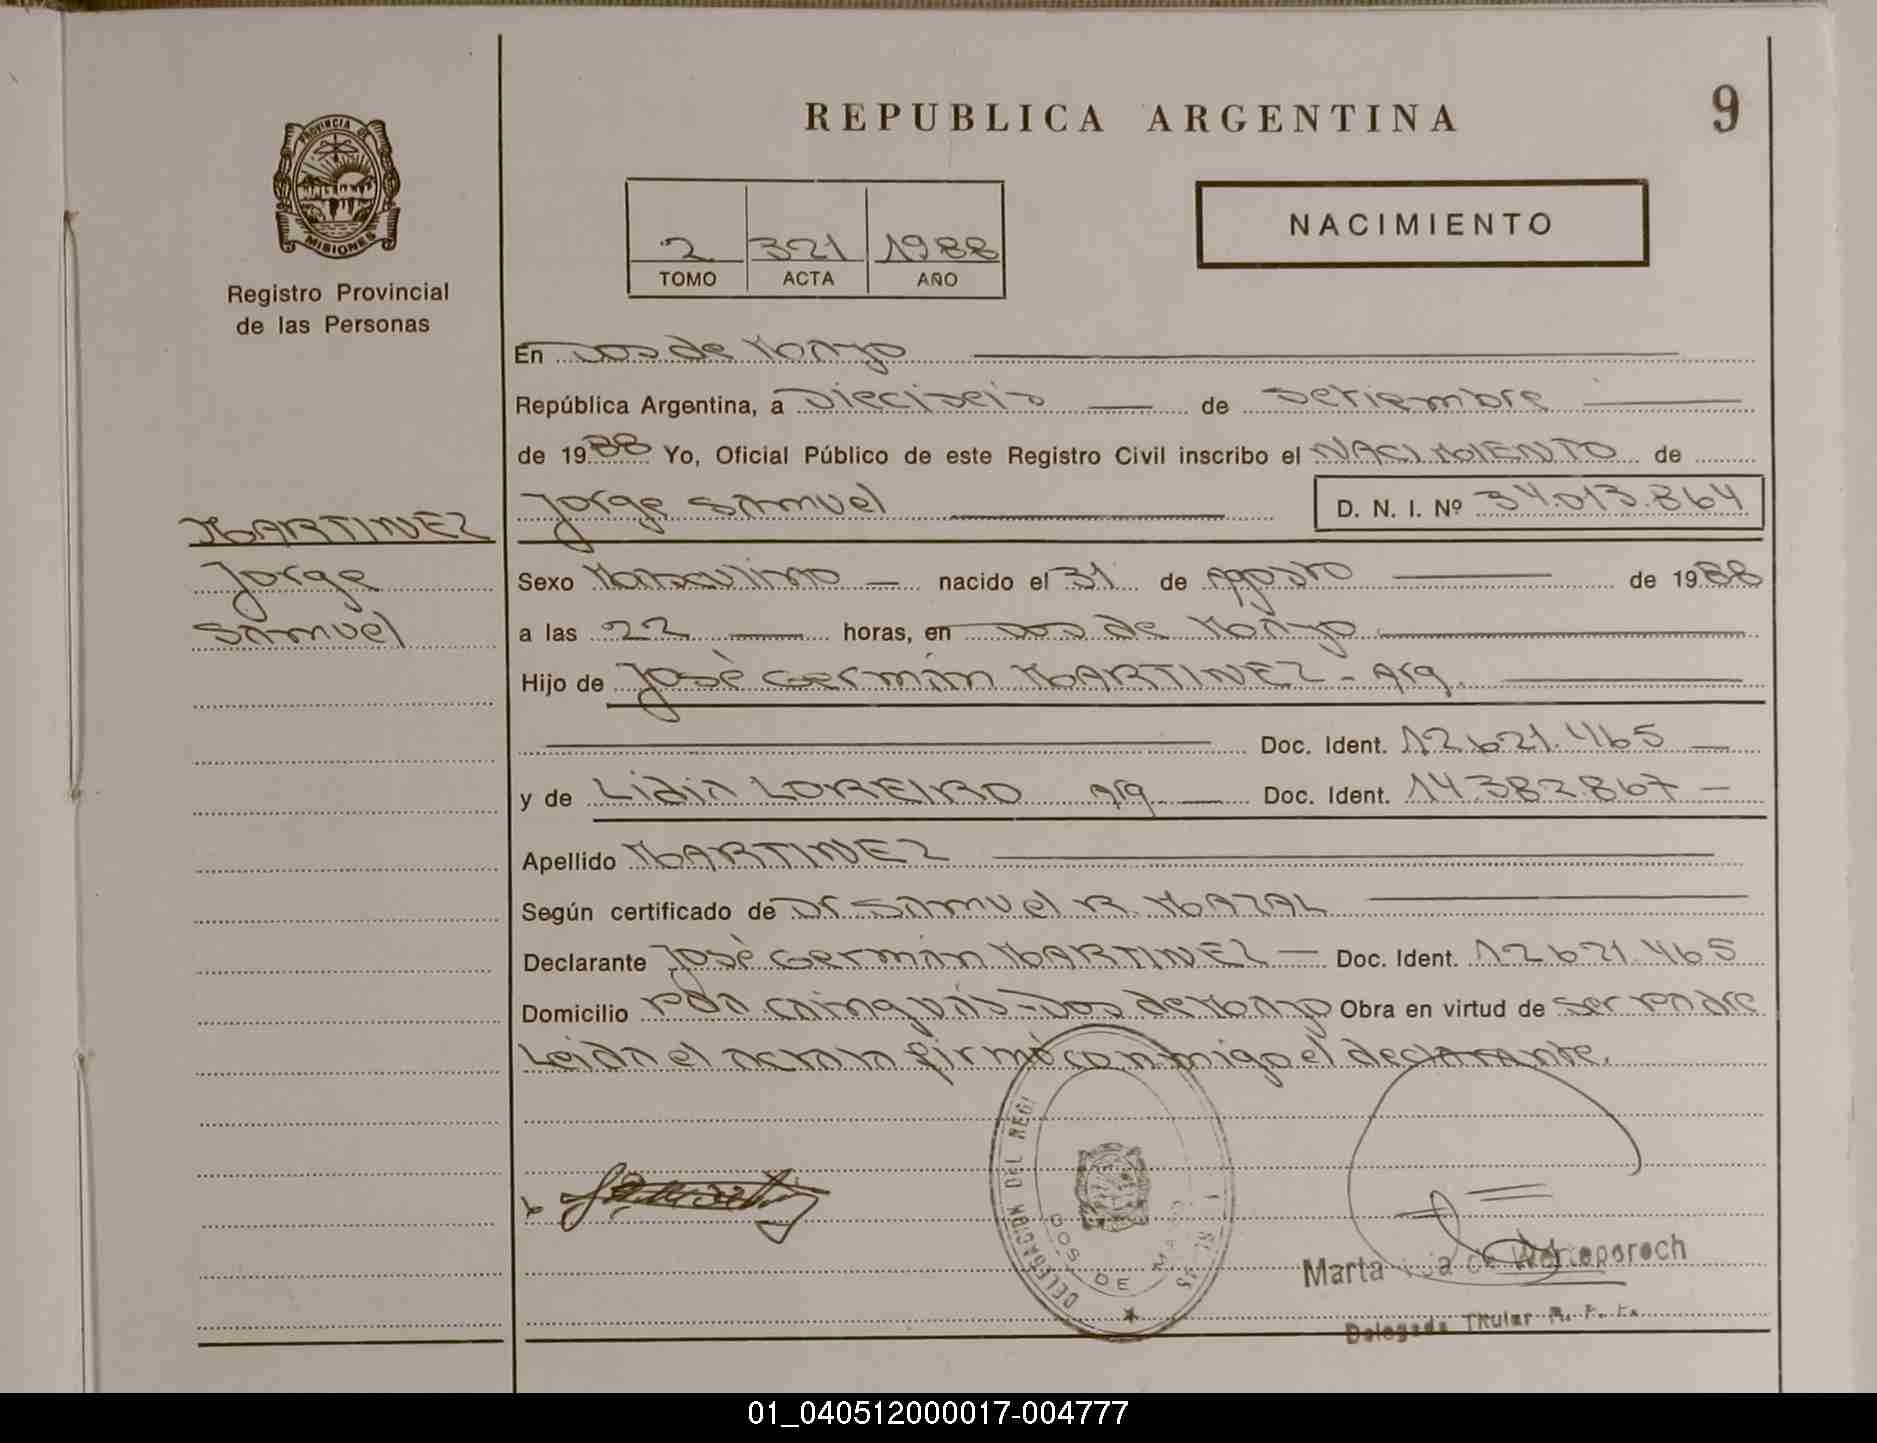 REPUBLICA ARGENTINA
9
PROVINCIA DE
MISIONES
Registro Provincial
de las Personas
2 321 1988
TOMO ACTA AÑO
NACIMIENTO
En Dos de Mayo
República Argentina, a Dieciseis de Setiembre
de 1988 Yo, Oficial Público de este Registro Civil inscribo el NACIMIENTO de
Jorge Samuel D. N. I. Nº 34.013.864
MARTINEZ
Jorge
Samuel
Sexo Masculino nacido el 31 de Agosto de 1988
a las 22 horas, en Dos de Mayo
Hijo de Josè Germán MARTINEZ - Arg.
Doc. Ident. 12.621.465
y de Lidia LOREIRO Arg Doc. Ident. 14.382.867
Apellido MARTINEZ
Según certificado de Dr Samuel R. MAZAL
Declarante Josè Germán MARTINEZ Doc. Ident. 12.621.465
Domicilio Pdn. Cainguás - Dos de Mayo Obra en virtud de ser Padre
Leida el acta la firmó conmigo el declarante.
DELEGACION DEL REGI
DOS DE MAYO
Marta de Werteporoch
Delegada Titular R. P. P.
01_040512000017-004777